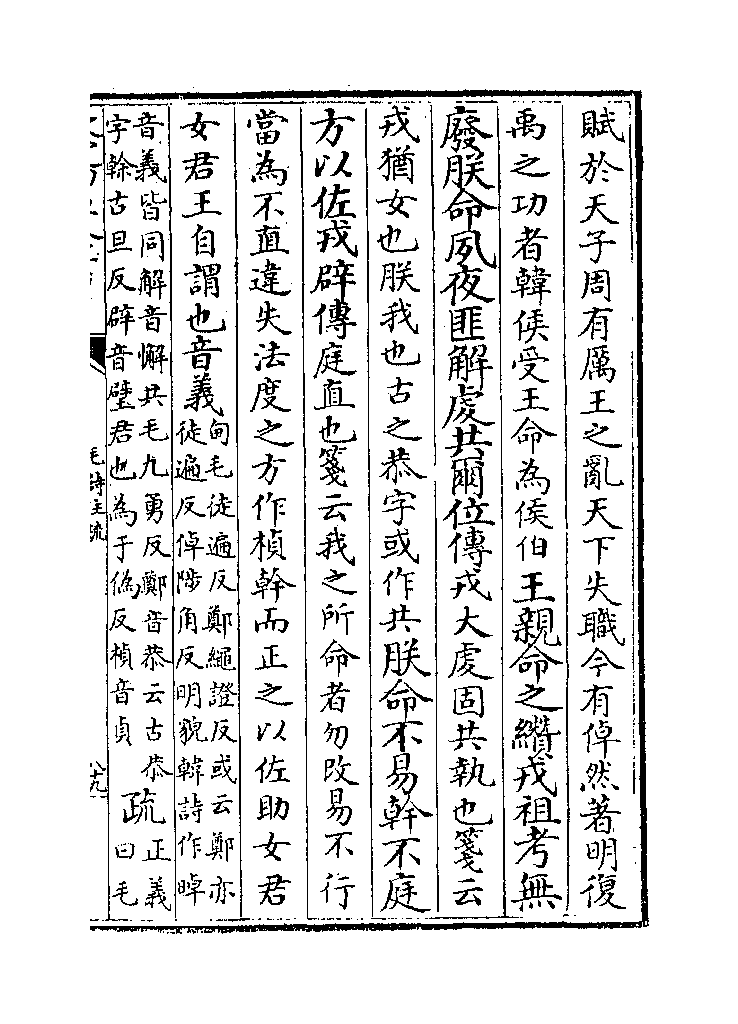 賦於天子周有厲王之亂天下失職今有倬然著明復
禹之功者韓侯受王命為侯伯王親命之纘戎祖考無
廢朕命夙夜匪解虔共爾位傳戎大虔固共執也箋云
戎猶女也朕我也古之恭字或作共朕命不易榦不庭
方以佐戎辟傳庭直也箋云我之所命者勿改易不行
當為不直違失法度之方作楨幹而正之以佐助女君
女君王自謂也音義
甸毛徒遍反鄭繩證反或云鄭亦
徒遍反倬陟角反明貌韓詩作晫
音義皆同解音懈共毛九勇反鄭音恭云古恭
字榦古旦反辟音璧君也為于偽反楨音貞
疏
正義
曰毛
毛詩注疏
八十九